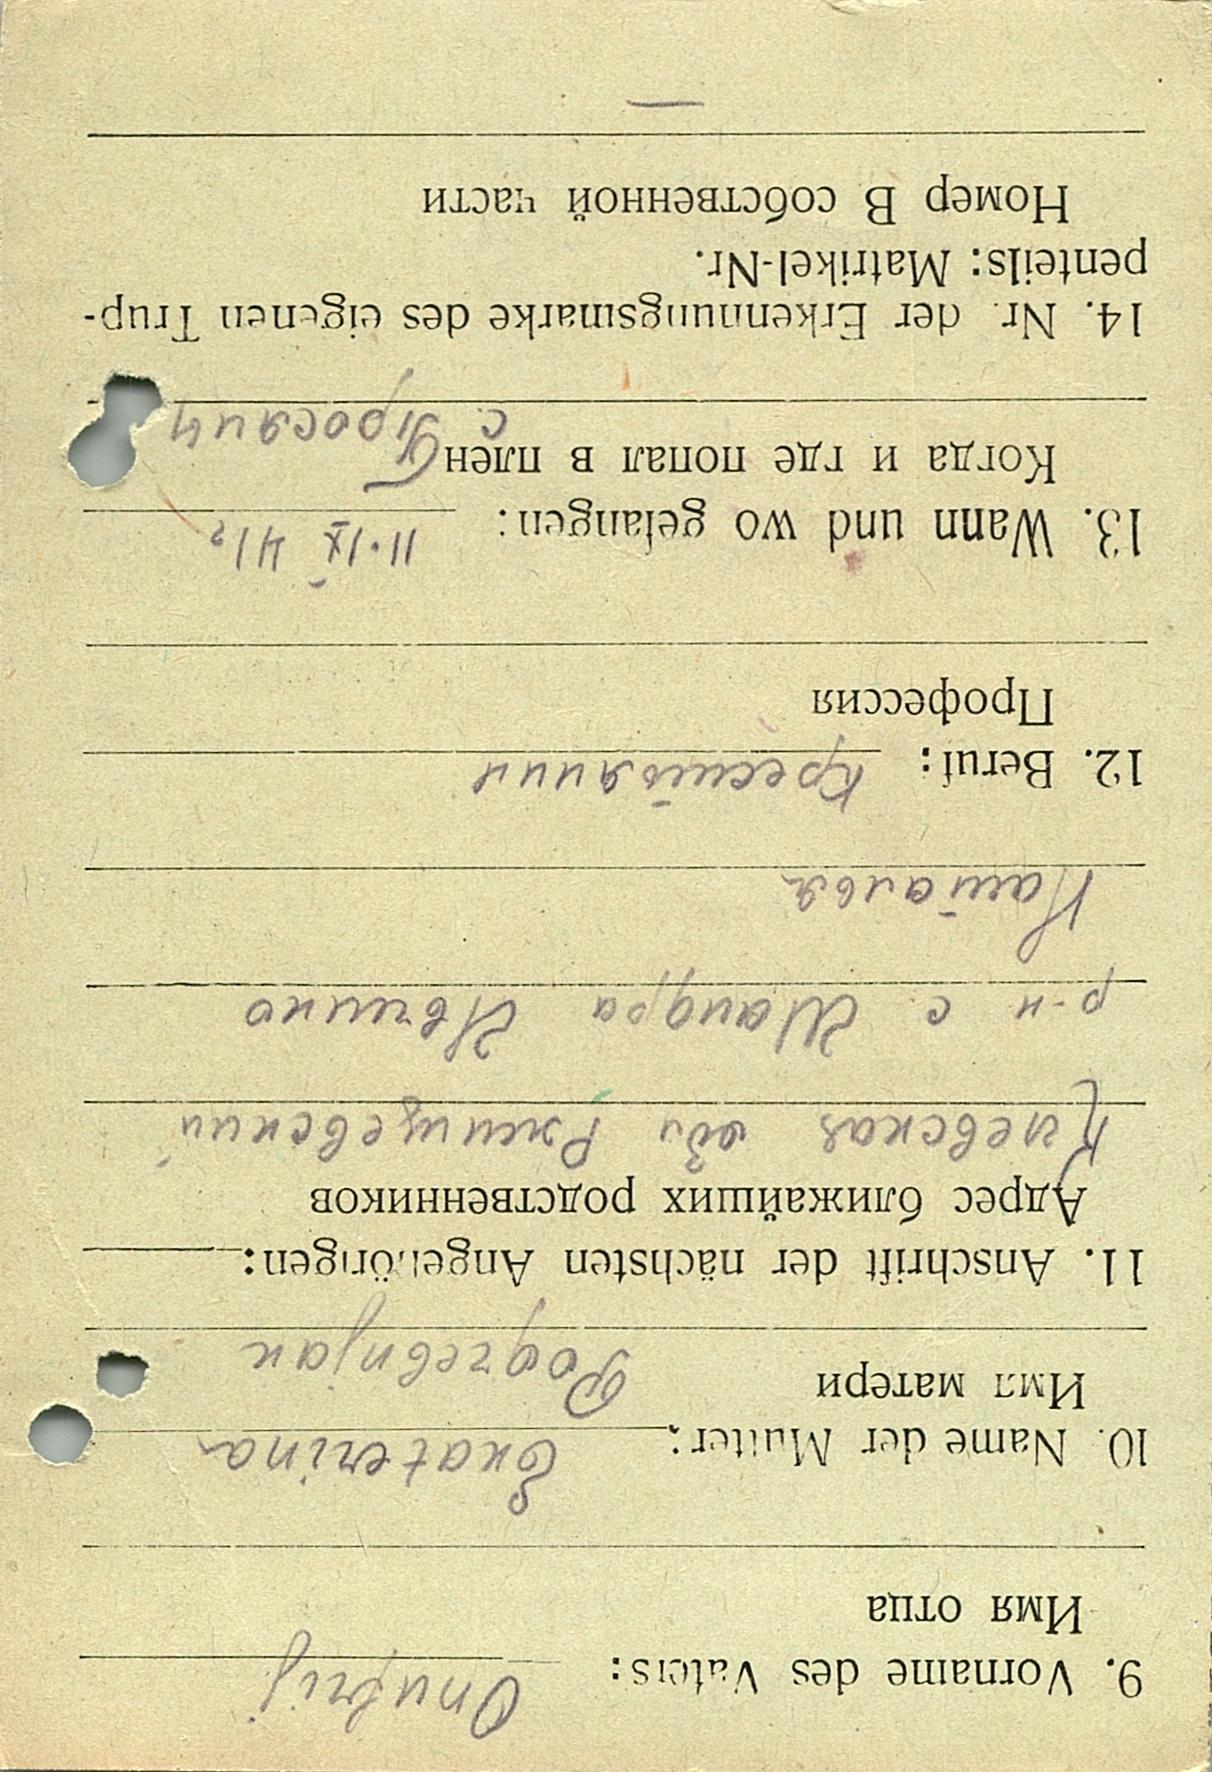 9. Vorname des Vaters: Onufrij
Имя отца
10. Name der Mutter: Ekaterina
Имя матери
11. Anschrift der nächsten Angehörigen:
Адрес ближайших родственников
Киевская обл Ржищевский
р-н с.
Наталья
12. Beruf: Крестьянин
Профессия
13. Wann und wo gefangen: 11.IX 41 г
Когда и где попал в плен с.
14. Nr. der Erkennungsmarke des eigenen Trup-
penteils: Matrikel-Nr.
Номер В собственной части
—